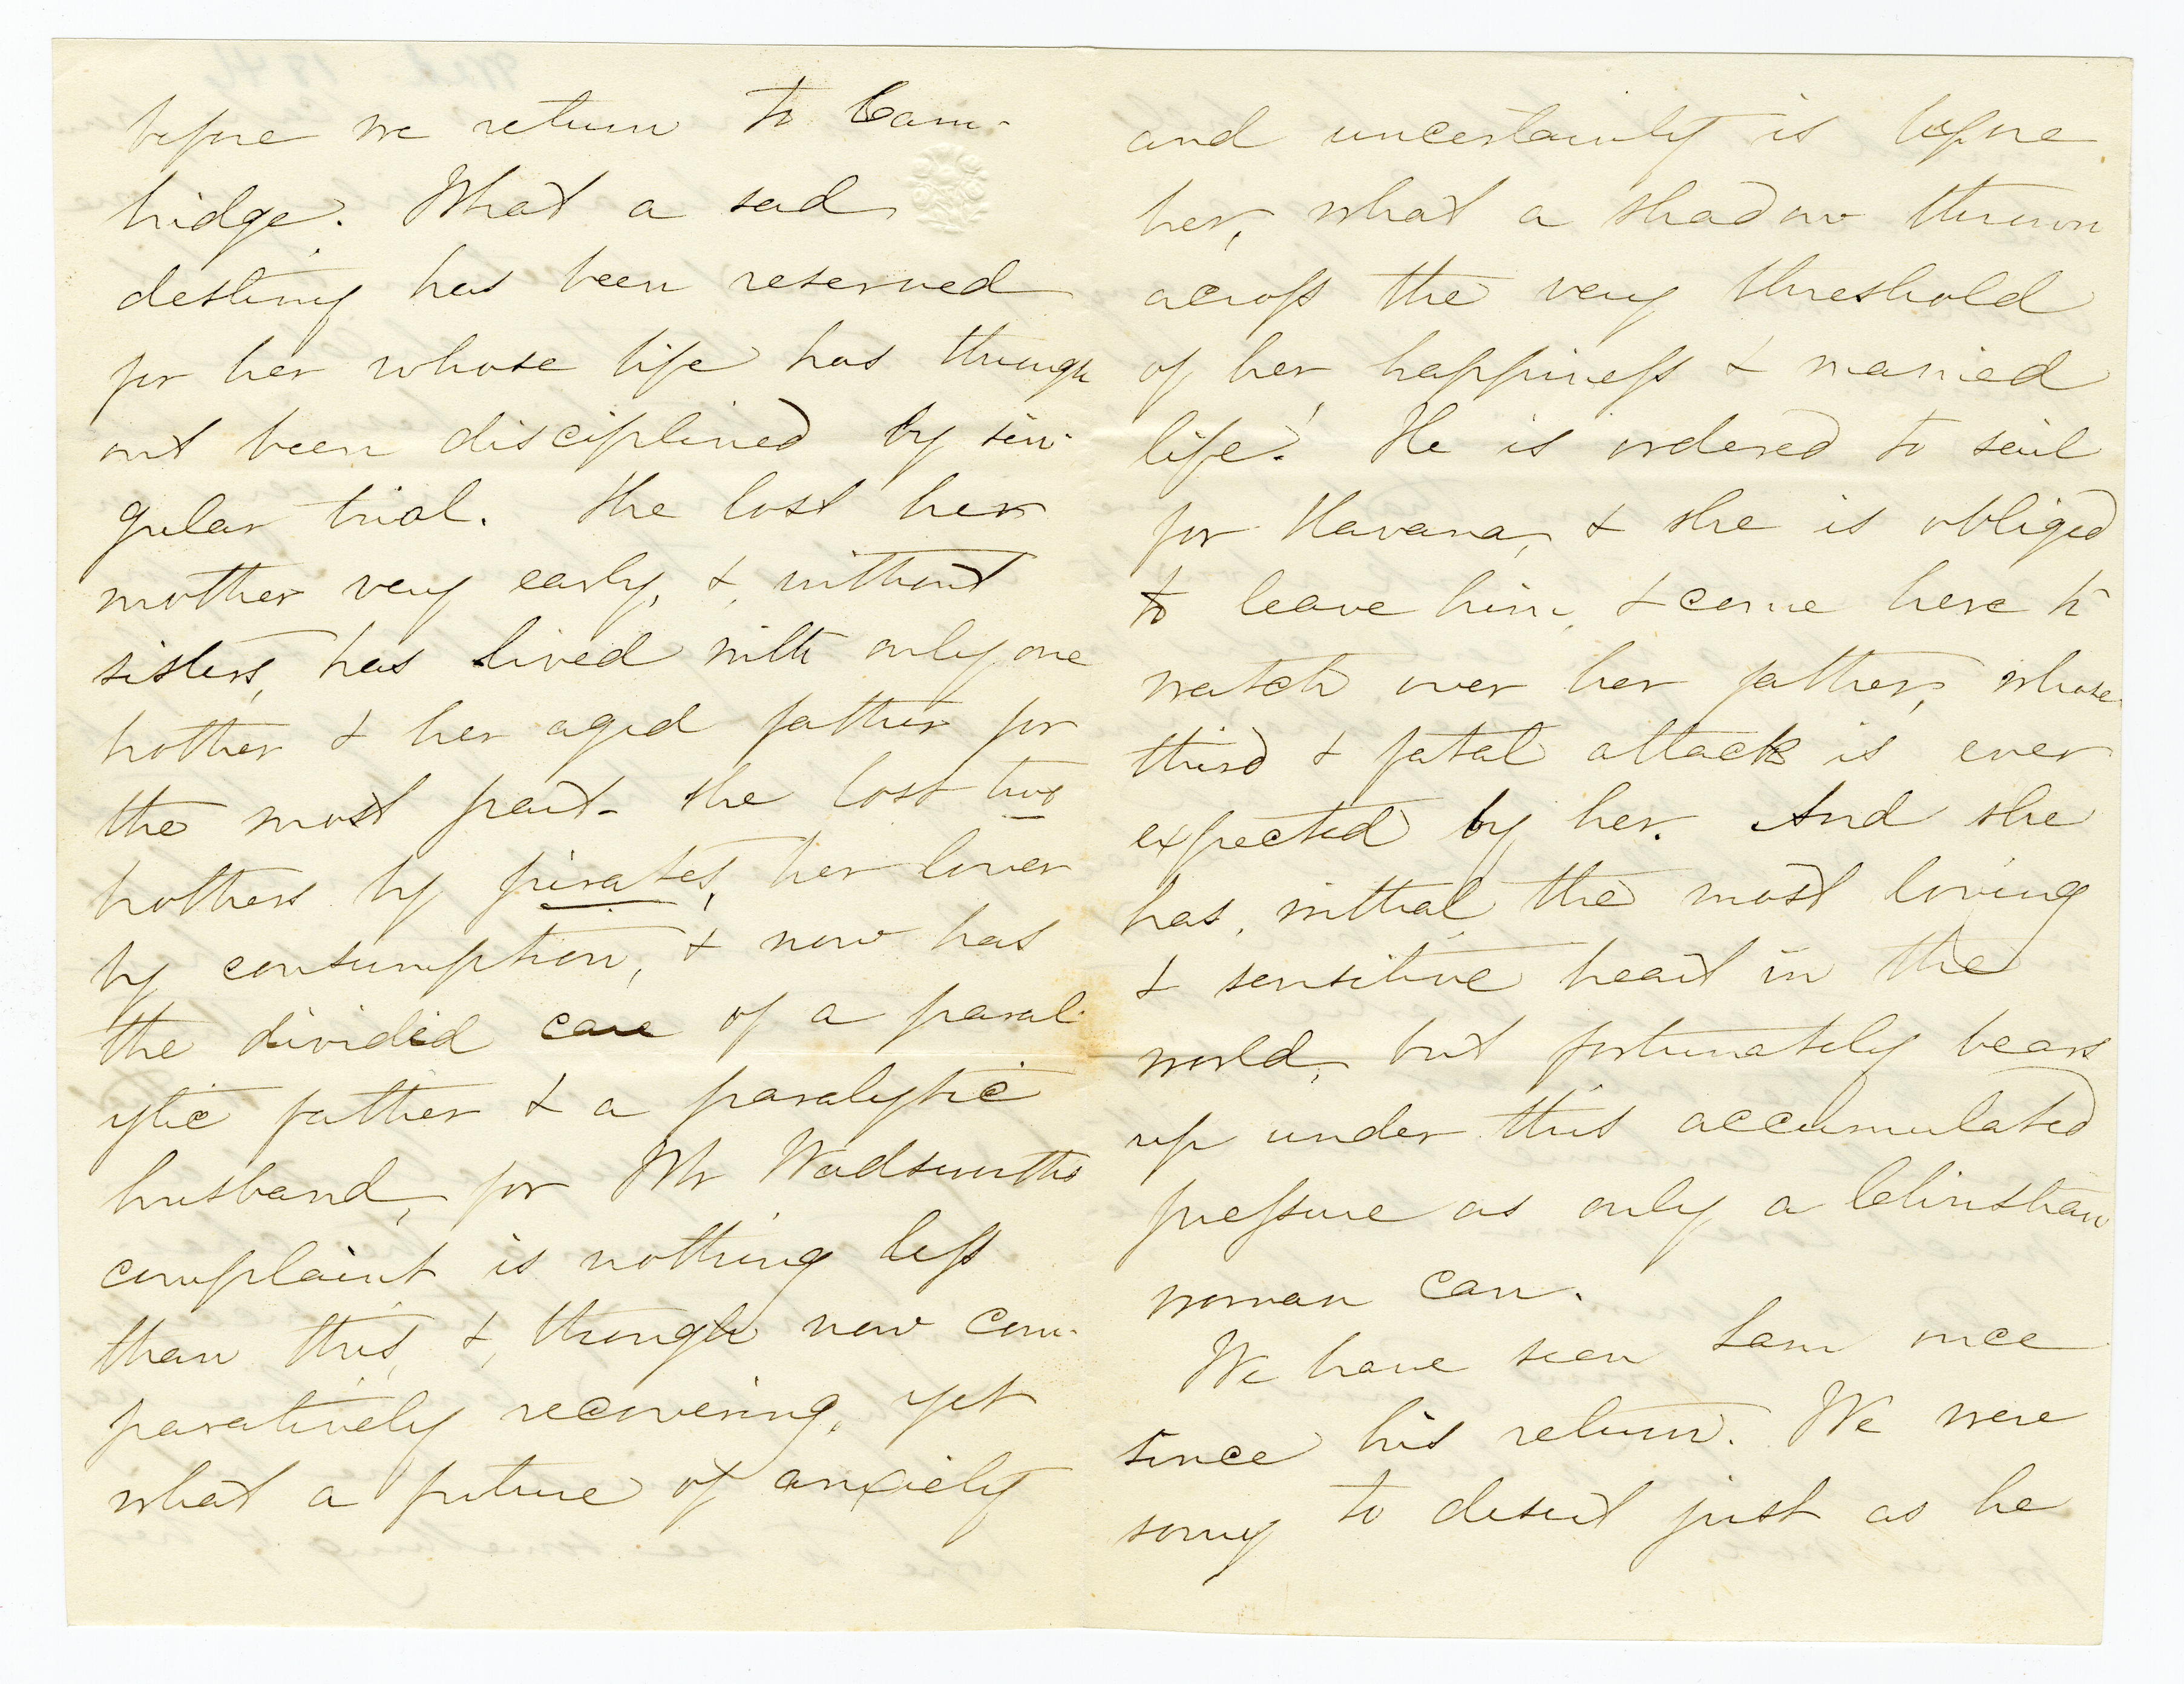 before we return to Cam-
bridge. What a sad
destiny has been reserved
for her whose life has through
out been disciplined by sin-
gular trial. She lost her
mother very early, & without
sisters, has lived with only one
brother & her aged father for
the most part - she lost two
brothers by pirates, her lover
by consumption, & now has
the divided care of a paral-
ytic father & a paralytic
husband, for Mr Wadsworth's
complaint is nothing less
than this, &, though now com-
paratively recovering, yet
what a future of anxiety
and uncertainty is before
her, what a shadow thrown
across the very threshold
of her happiness & married
life! He is ordered to sail
for Havana, & she is obliged
to leave him, & come here to
watch over her father, whose
third & fatal attack is ever
expected by her. And she
has, withal, the most loving
& sensitive heart in the
world, but fortunately bears
up under this accumulated
pressure as only a Christian
woman can.
We have seen Sam once
since his return. We were
sorry to desert just as he